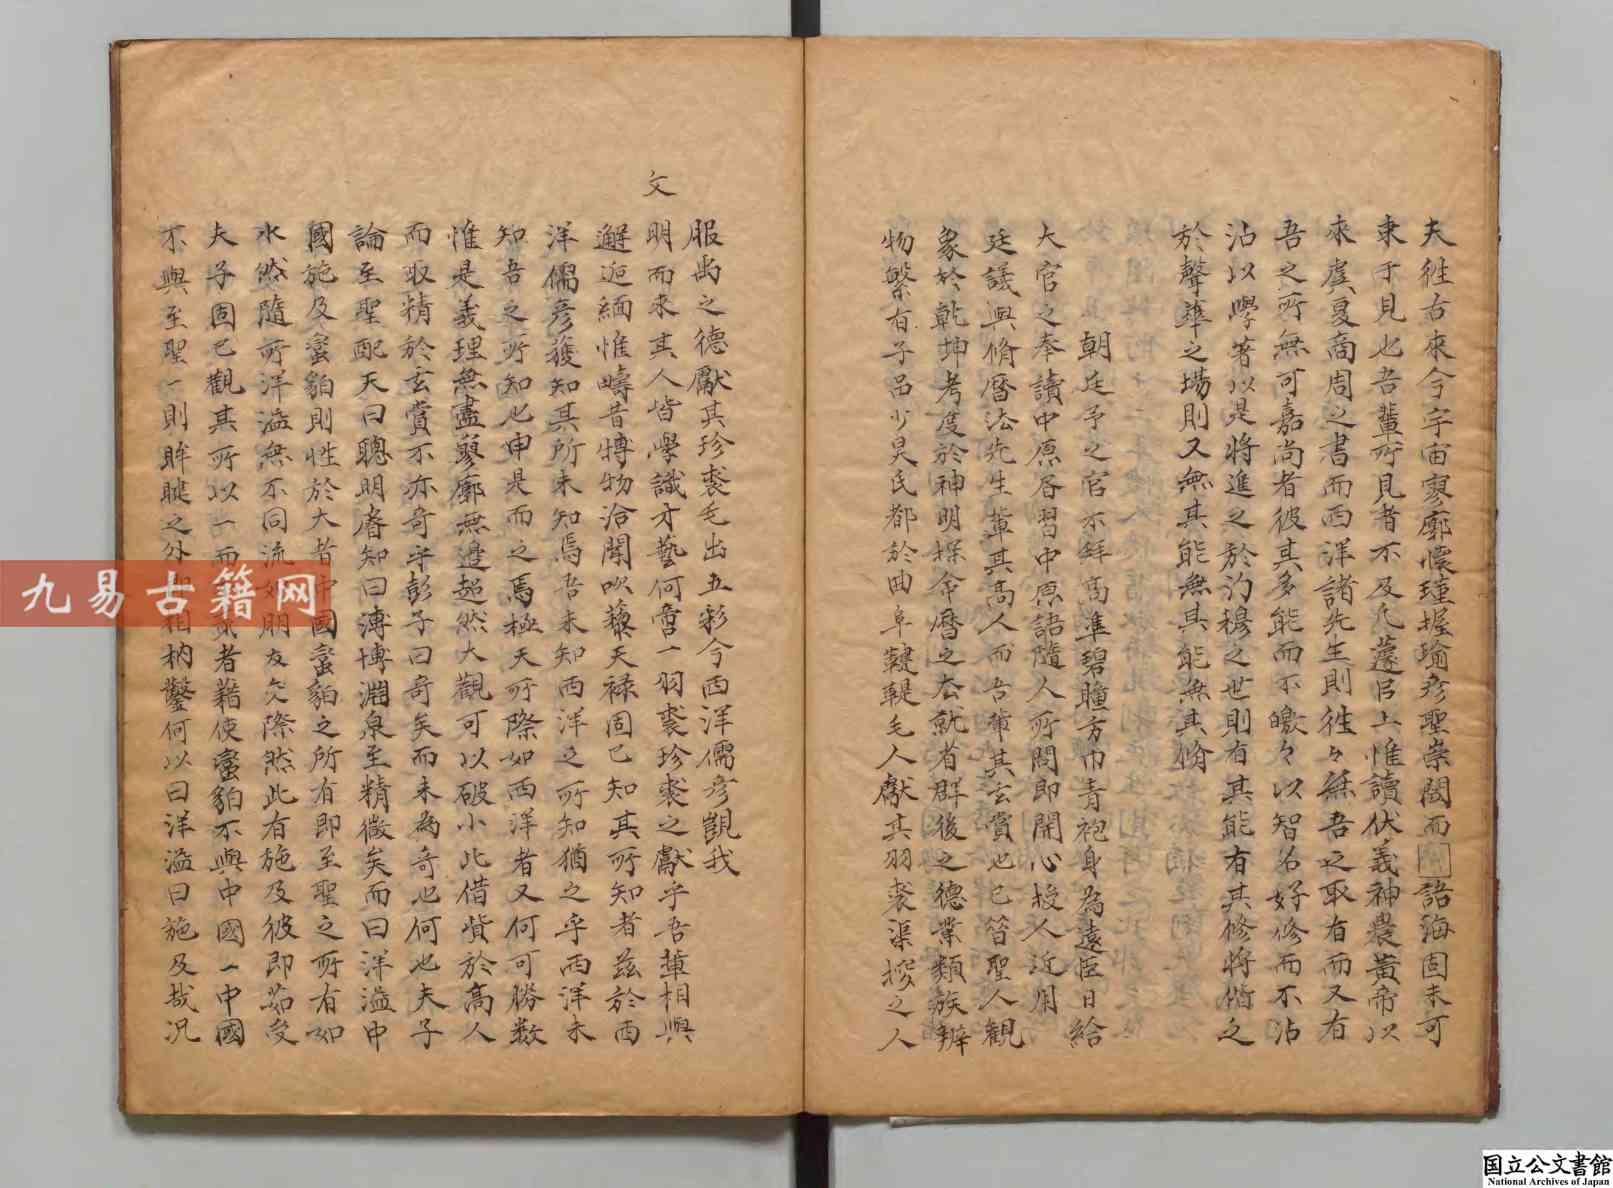 夫徃古來今宇宙寥廓懷瑾握瑜彥聖崇閎而語海固未可
束于見也吾輩所見者不及凡蘧臣上惟讀伏羲神農黃帝以
來虞夏商周之書而西洋諸先生則徃々無吾之取有而又有
吾之所無可嘉尚者彼其多能而不皦々以智名好修而不沾
沾以學著以是將進之於汋穆之世則有其能有其修將脩之
於聲華之場則又無其能無其脩
朝廷予之官亦拜高準碧瞳方巾青袍身為遠臣日給
大官之奉讀中原書習中原語隨人所問即開心授人近用
廷議與脩曆法先生輩其高人而吾常其玄賞也已昔聖人觀
象於乾坤考度於神明探命曆之去就省群後之德業類族辦
物繁有子品少昊氏都於曲阜鞬鞮毛人獻其羽裘渠搜之人
服禹之德獻其珍裘毛出五彩今西洋儒彥覬我
文
明而来其人皆學識才藝何啻一羽裘珍裘之獻乎吾輩相與
邂逅緬惟疇昔博物洽聞吹藜天禄固已知其所知者茲於西
洋儒彥獲知其所未知焉吾未知西洋之所知猶之乎西洋未
知吾之所知也申是而之焉極天所際如西洋者又何可勝数
惟是義理無盡寥廓無邊超然大觀可以破小此借貲於高人
而取精於玄賞不亦奇乎彭子曰奇矣而未為奇也何也夫子
論至聖配天曰聰明睿知曰溥博淵泉至精微矣而曰洋溢中
國施及蠻貊則性於大者中國蠻貊之所有即至聖之所有如
水然隨所洋溢無不同流如朋友交際然此有施及彼即茹受
夫子固已觀其所以一而來者藉使蠻貊不與中國一中國
不與至聖一則眸睫之外即相枘鑿何以曰洋溢曰施及哉况
九易古籍网
国立公文書館
National Archives of Japan